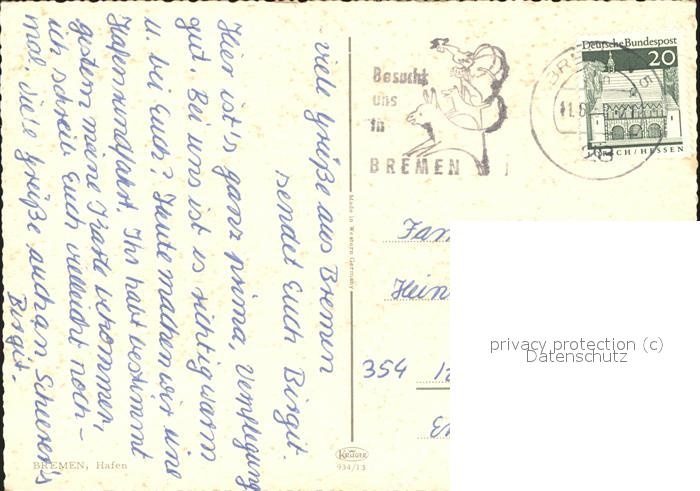 - viele Grüße aus Bremen
sendet Euch Birgit.
Hier ist's ganz prima, Verpflegung
gut. Bei uns ist es richtig warm
u. bei Euch? Heute machen wir eine
Hafenrundfahrt. Ihr habt bestimmt
gestern meine Karte bekommen,
ich schreib Euch vielleicht noch-
mal. Viele Grüße auch an Scheerer's
Birgit.
BREMEN, Hafen
Made in Western Germany
KRÜGER
934/13
Besucht
uns
in
BREMEN
Deutsche Bundespost
20
LORSCH/HESSEN
Fam
Hein
354
privacy protection (c)
Datenschutz